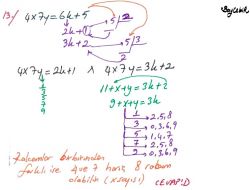 13)
4x7y = 6k+5
2k+1 5 2
3k+2 5 3
2
4x7y = 2k+1 ∧ 4x7y = 3k+2
1
3
5
7
9
11+x+y = 3k+2
9+x+y = 3k
1 → 2,5,8
3 → 0,3,6,9
5 → 1,4,7
7 → 2,5,8
9 → 0,3,6,9
Rakamlar birbirinden
farklı ise 4 ve 7 hariç 8 rakam
olabilir (x sayısı)
CEVAP: D